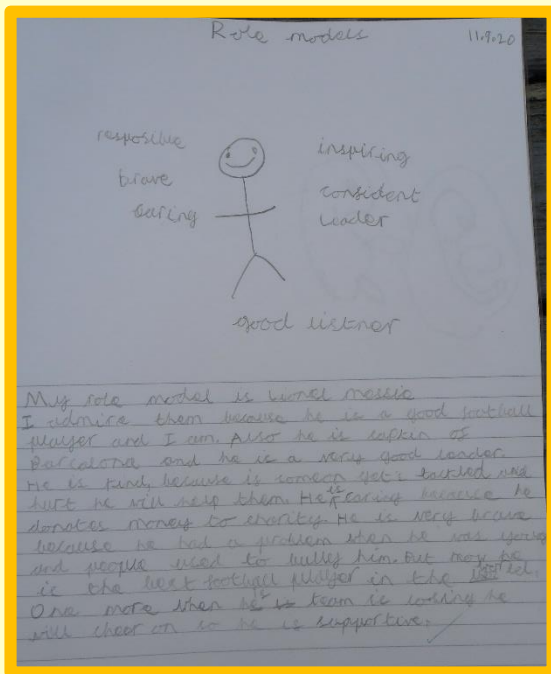 Role models 11.9.20
resposible inspiring
brave consident
caring leader
good listner
My role model is Lionel messie
I admire them because he is a good football
player and I am. Also he is capkin of
Barcalona and he is a very good leader.
He is kind, because is someon get's tackled and
hurt he will help them. He is caring because he
donates money to charity. He is very brave
because he had a problem when he was young
and people used to bully him. But now he
is the best football player in the
One more when his team is loosing he
will cheer on so he is supportive.